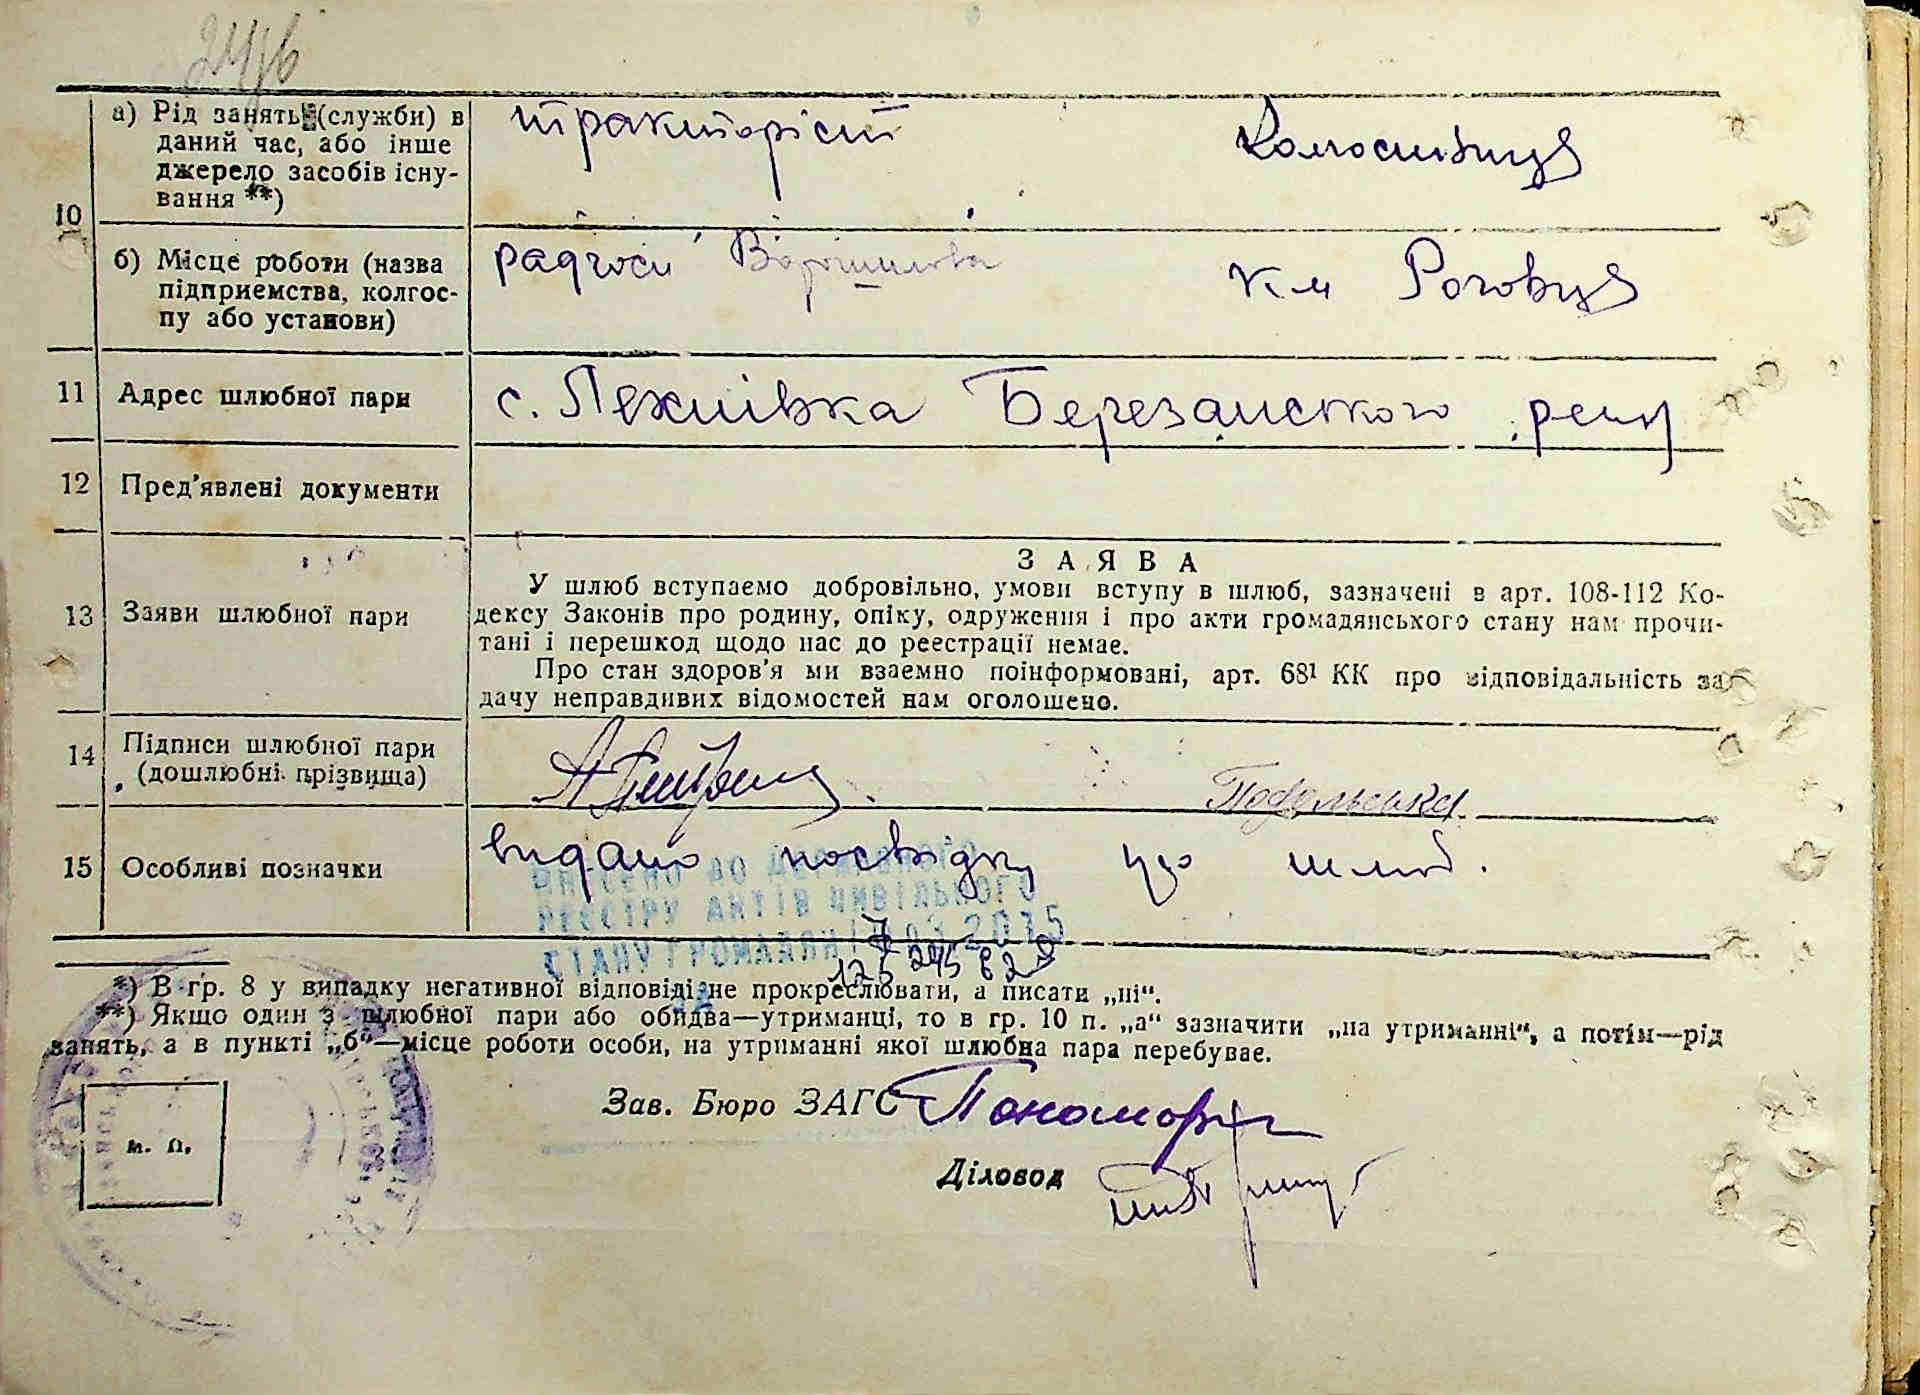 10
а) Рід занять (служби) в
даний час, або інше
джерело засобів існу-
вання **)
трактористі
б) Місце роботи (назва
підприємства, колгос-
пу або установи)
радгосп Ворошилова
11 Адрес шлюбної пари
с. Лехнівка Березанского
12 Пред'явлені документи
13 Заяви шлюбної пари
ЗАЯВА
У шлюб вступаємо добровільно, умови вступу в шлюб, зазначені в арт. 108-112 Ко-
дексу Законів про родину, опіку, одруження і про акти громадянського стану нам прочи-
тані і перешкод щодо нас до реестрації немає.
Про стан здоров'я ми взаємно поінформовані, арт. 68¹ КК про відповідальність за
дачу неправдивих відомостей нам оголошено.
14 Підписи шлюбної пари
(дошлюбні прізвища)
Подольська
15 Особливі позначки
видано посвідку про шлюб.
ВНЕСЕНО ДО ДЕРЖАВНОГО
РЕЄСТРУ АКТІВ ЦИВІЛЬНОГО
СТАНУ ГРОМАДЯН 2015
*) В гр. 8 у випадку негативної відповіді не прокреслювати, а писати „ні“.
**) Якщо один з шлюбної пари або обидва—утриманці, то в гр. 10 п. „а“ зазначити „на утриманні“, а потім—рід
занять, а в пункті „б“—місце роботи особи, на утриманні якої шлюбна пара перебуває.
м. п.
Зав. Бюро ЗАГС
Діловод